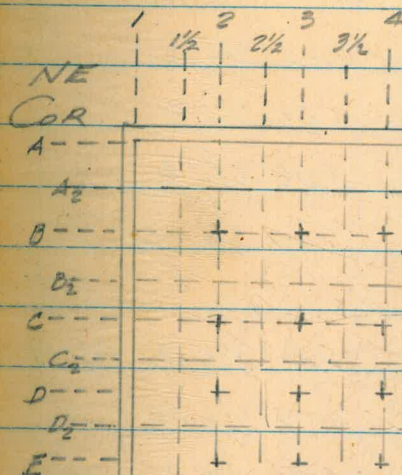 1 2 3 4
1½ 2½ 3½
NE
COR
A
A2
B
B2
C
C2
D
D2
E